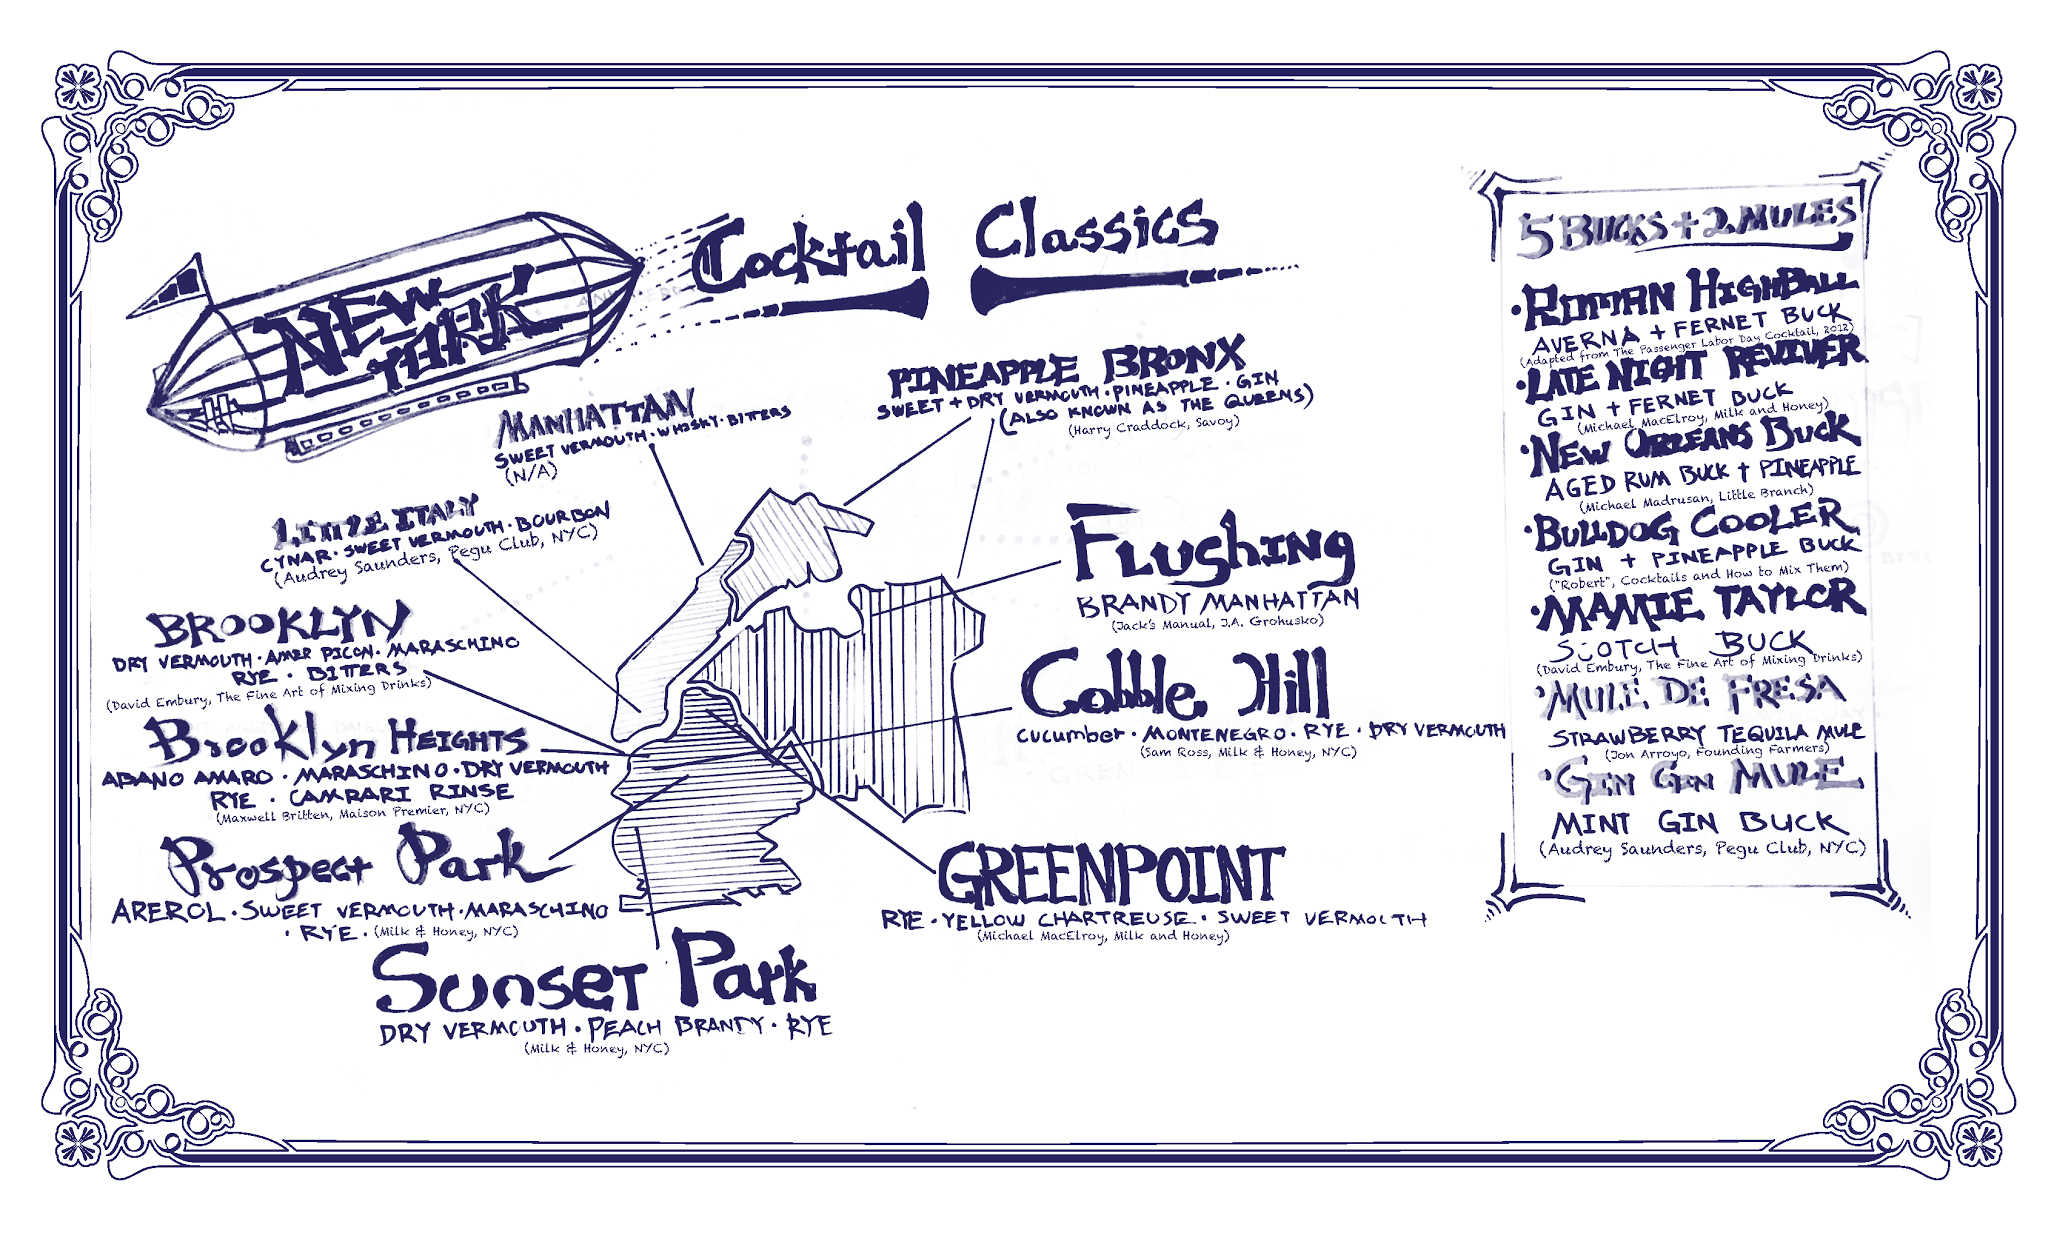 NEW
YORK
Cocktail Classics
MANHATTAN
SWEET VERMOUTH · WHISKY · BITTERS
(N/A)
PINEAPPLE BRONX
SWEET + DRY VERMOUTH · PINEAPPLE · GIN
(ALSO KNOWN AS THE QUEENS)
(Harry Craddock, Savoy)
LITTLE ITALY
CYNAR · SWEET VERMOUTH · BOURBON
(Audrey Saunders, Pegu Club, NYC)
BROOKLYN
DRY VERMOUTH · AMER PICON · MARASCHINO
RYE · BITTERS
(David Embury, The Fine Art of Mixing Drinks)
Brooklyn HEIGHTS
ABANO AMARO · MARASCHINO · DRY VERMOUTH
RYE · CAMPARI RINSE
(Maxwell Britten, Maison Premier, NYC)
Prospect Park
AREROL · SWEET VERMOUTH · MARASCHINO
· RYE · (Milk & Honey, NYC)
Sunset Park
DRY VERMOUTH · PEACH BRANDY · RYE
(Milk & Honey, NYC)
Flushing
BRANDY MANHATTAN
(Jack's Manual, J.A. Grohusko)
Cobble Hill
cucumber · MONTENEGRO · RYE · DRY VERMOUTH
(Sam Ross, Milk & Honey, NYC)
GREENPOINT
RYE · YELLOW CHARTREUSE · SWEET VERMOUTH
(Michael MacElroy, Milk and Honey)
5 BUCKS + 2 MULES
· ROMAN HIGHBALL
AVERNA + FERNET BUCK
(Adapted from The Passenger Labor Day Cocktail, 2012)
· LATE NIGHT REVIVER
GIN + FERNET BUCK
(Michael MacElroy, Milk and Honey)
· NEW ORLEANS BUCK
AGED RUM BUCK + PINEAPPLE
(Michael Madrusan, Little Branch)
· BULLDOG COOLER
GIN + PINEAPPLE BUCK
("Robert", Cocktails and How to Mix Them)
· MAMIE TAYLOR
SCOTCH BUCK
(David Embury, The Fine Art of Mixing Drinks)
· MULE DE FRESA
STRAWBERRY TEQUILA MULE
(Jon Arroyo, Founding Farmers)
· GIN GIN MULE
MINT GIN BUCK
(Audrey Saunders, Pegu Club, NYC)